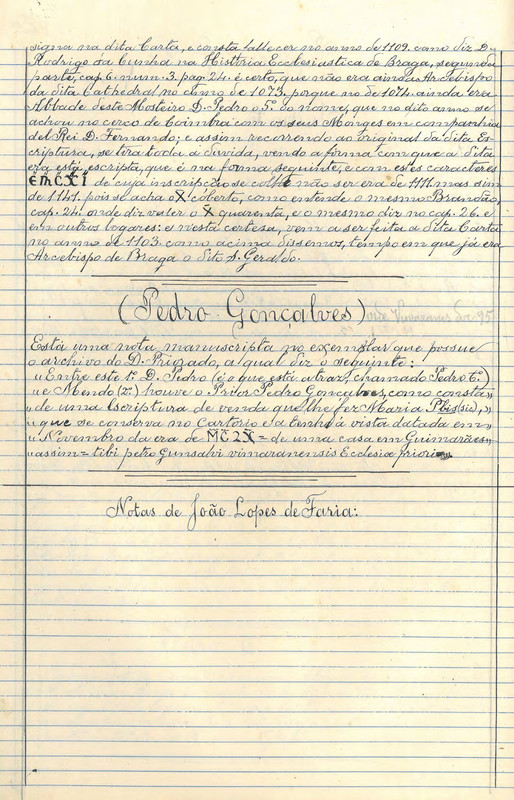 signa na dita Carta, e consta fallecer no anno de 1109. como diz D.
Rodrigo da Cunha na Histtria Ecclesiastica de Braga, segunda
parte, cap. 6. num. 3. pag. 24. é certo, que não era ainda Arcebispo
da dita Cathedral no anno de 1073. porque no de 1074. ainda era
Abbade deste Mosteiro D. Pedro o 5º do nome, que no dito anno se
achou no cerco de Coimbra com os seus Monges em companhia
del Rei D. Fernando; e assim recorrendo ao original da dita Es-
criptura, se tira toda a duvida, vendo a forma com que a Dita
era está escripta, que é na forma seguinte, e com estes caracteres
de cuja inscripção se colhe não ser era de 1111. mas sim
de 1141. pois se acha o X coberto, como entende o mesmo Brandão,
cap. 24. onde diz valer o X quarenta, e o mesmo diz no cap. 26. e
em outros logares: e nesta certesa, vem a ser feita a dita Carta
no anno de 1103. como acima dissemos, tempo em que já era
Arcebispo de Braga o dito S. Geraldo.
(Pedro Gonçalves)
Está uma nota manuscripta no exemplar que possue
o archivo do D. Priorado, a qual diz o seguinte:
"Entre este 1º D. Pedro (é o que está atraz, chamado Pedro 6º)
"e Mendo (2º) houve o Prior Pedro Gonçalves, como consta"
"de uma Escriptura de venda que lhe fez Maria Pbis (sic),"
"que se conserva no Cartorio e a tenho á vista datada em"
"Novembro da era de = de uma casa em Guimarães"
"assim = tibi petro Gunsalvi vimaranensis Ecclesia priori".
Notas de João Lopes de Faria: